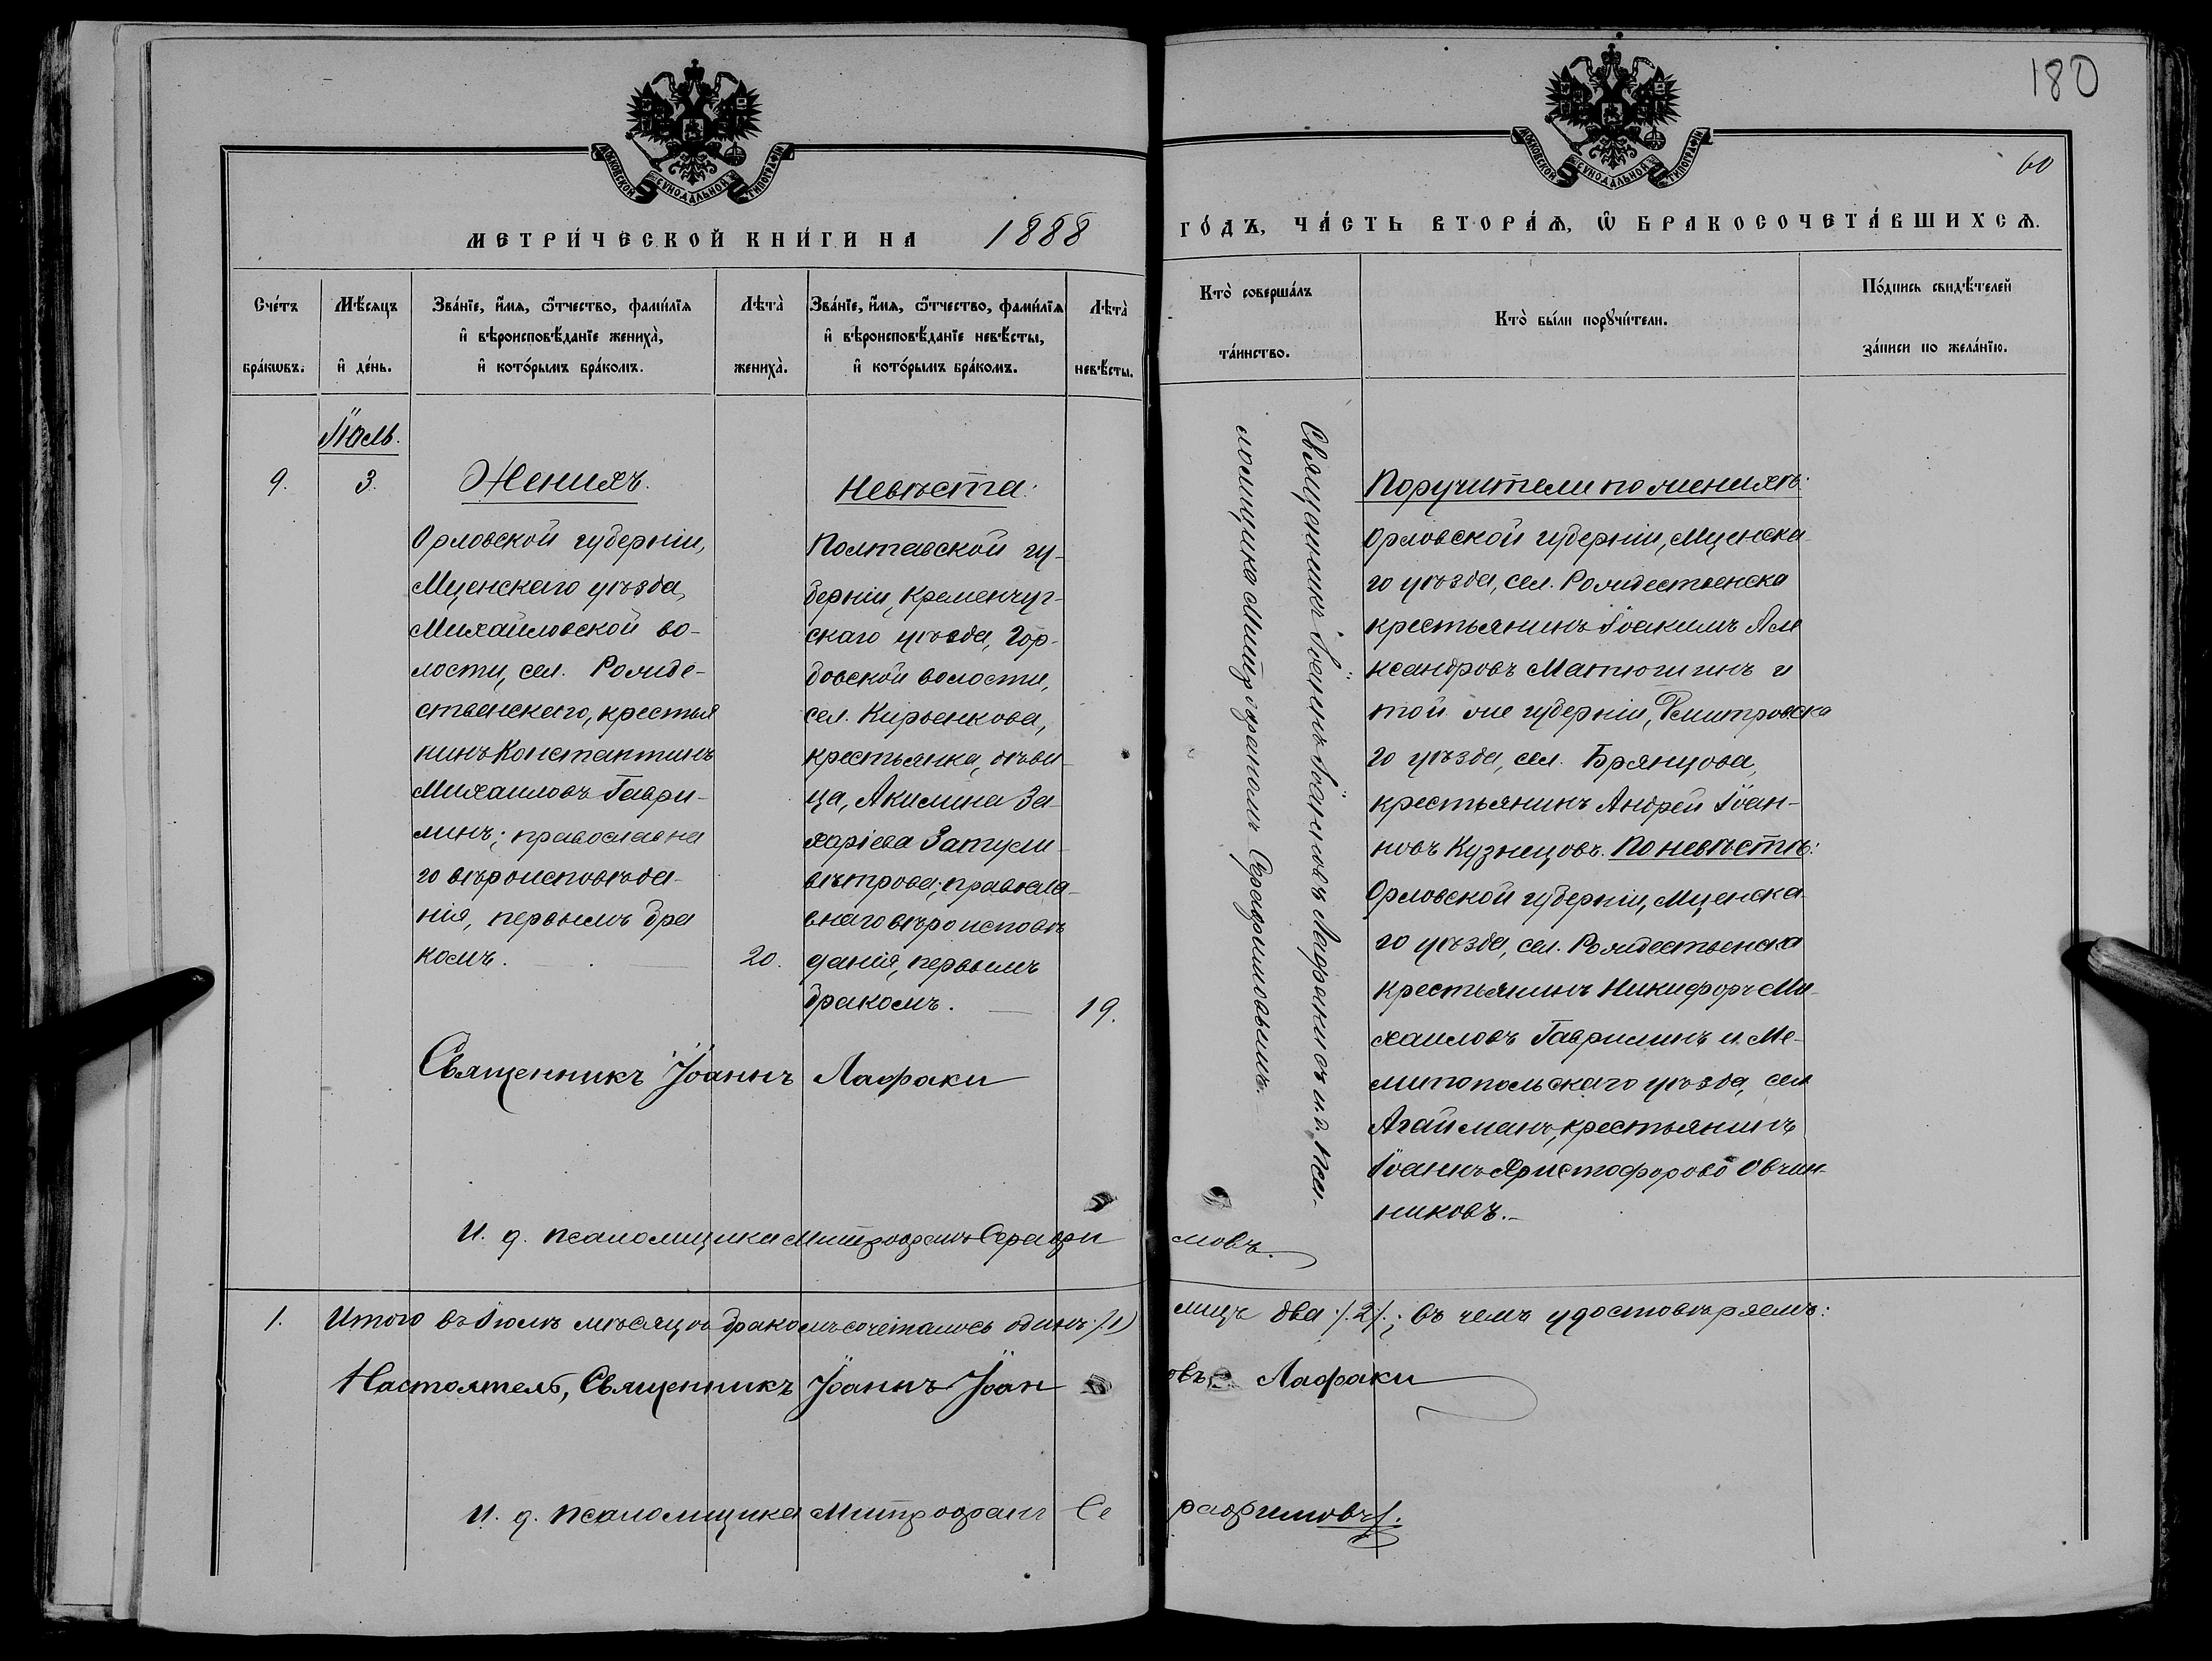 180
МОСКОВСКОЙ СѴНОДАЛЬНОЙ ТИПОГРАФІИ
МОСКОВСКОЙ СѴНОДАЛЬНОЙ ТИПОГРАФІИ
60
МЕТРИ́ЧЕСКОЙ КНИ́ГИ НА 1888
ГО́ДЪ, ЧА́СТЬ ВТОРА́Ѧ, Ѡ҆ БРАКОСОЧЕТА́ВШИХСѦ.
Сче́тъ
бра́кѡвъ.
Мѣ́сяцъ
и҆ де́нь.
Зва́нїе, и҆́мя, ѻ҆́тчество, фами́лїя
и҆ вѣроисповѣ́данїе жениха̀,
и҆ кото́рымъ бра́комъ.
Лѣта̀
жениха̀.
Зва́нїе, и҆́мя, ѻ҆́тчество, фами́лїя
и҆ вѣроисповѣ́данїе невѣ́сты,
и҆ кото́рымъ бра́комъ.
Лѣта̀
невѣ́сты.
Кто̀ соверша́лъ
та́инство.
Кто̀ бы́ли порꙋчи́тели.
По́дпись свидѣ́телей
за́писи по жела́нїю.
Іюль.
9.
3.
Женихъ.
Орловской губерніи,
Мценскаго уѣзда,
Михайловской во-
лости, сел. Рожде-
ственскаго, крестья
нинъ Константинъ
Михаиловъ Гаври-
линъ; православна
го вѣроисповѣда-
нія, первымъ бра
комъ.
20.
Невѣста:
Полтавской гу-
берніи, Кременчуг-
скаго уѣзда, Гор-
довской волости,
сел. Кирьенкова,
крестьянка, дѣви-
ца, Акилина За-
харіева Затули-
вѣтрова; правосла-
внаго вѣроисповѣ
данія, первымъ
бракомъ.
19.
Священникъ Іоаннъ Іоанновъ Лафаки съ и. д. пса-
ломщика Митрофаномъ Серафимовымъ.
Поручители по женихѣ:
Орловской губерніи, Мценска-
го уѣзда, сел. Рождественска
крестьянинъ Іоакимъ Але
ксандровъ Матюгинъ и
той же губерніи, Дмитровска
го уѣзда, сел. Брянцова,
крестьянинъ Андрей Іоан-
новъ Кузнецовъ. По невѣстѣ:
Орловской губерніи, Мценска-
го уѣзда, сел. Рождественска
крестьянинъ Никифоръ Ми-
хаиловъ Гаврилинъ и Ме-
литопольскаго уѣзда, сел
Агайманъ, крестьянинъ
Іоаннъ Христофоровъ Овчин-
никовъ.
Священникъ Іоаннъ Лафаки
И. д. псаломщика Митрофанъ Серафимовъ.
1. Итого въ Іюлѣ мѣсяцѣ бракомъ сочеталось одинъ /.1) лицъ два /.2/.; въ чемъ удостовѣряемъ:
Настоятель, Священникъ Іоаннъ Іоановъ Лафаки
И. д. псаломщика Митрофанъ Серафимовъ.